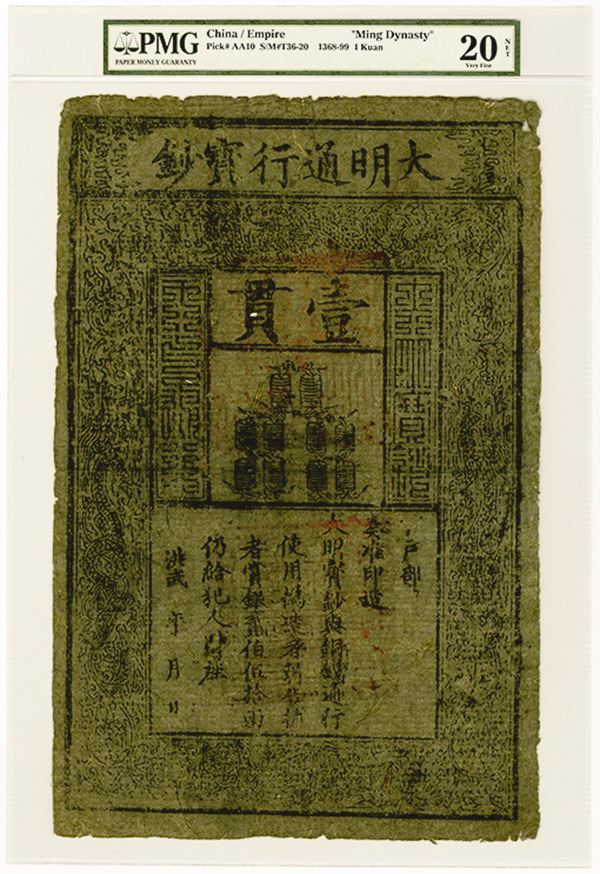 PMG
PAPER MONEY GUARANTY
China / Empire "Ming Dynasty"
Pick# AA10 S/M#T36-20 1368-99 1 Kuan
20 NET
Very Fine
大明通行寶鈔
壹貫
戶部
奏准印造
寶鈔與銅錢通行
使用偽造者斬告捕
者賞銀貳佰 拾兩
仍給犯人財產
洪武 年 月 日